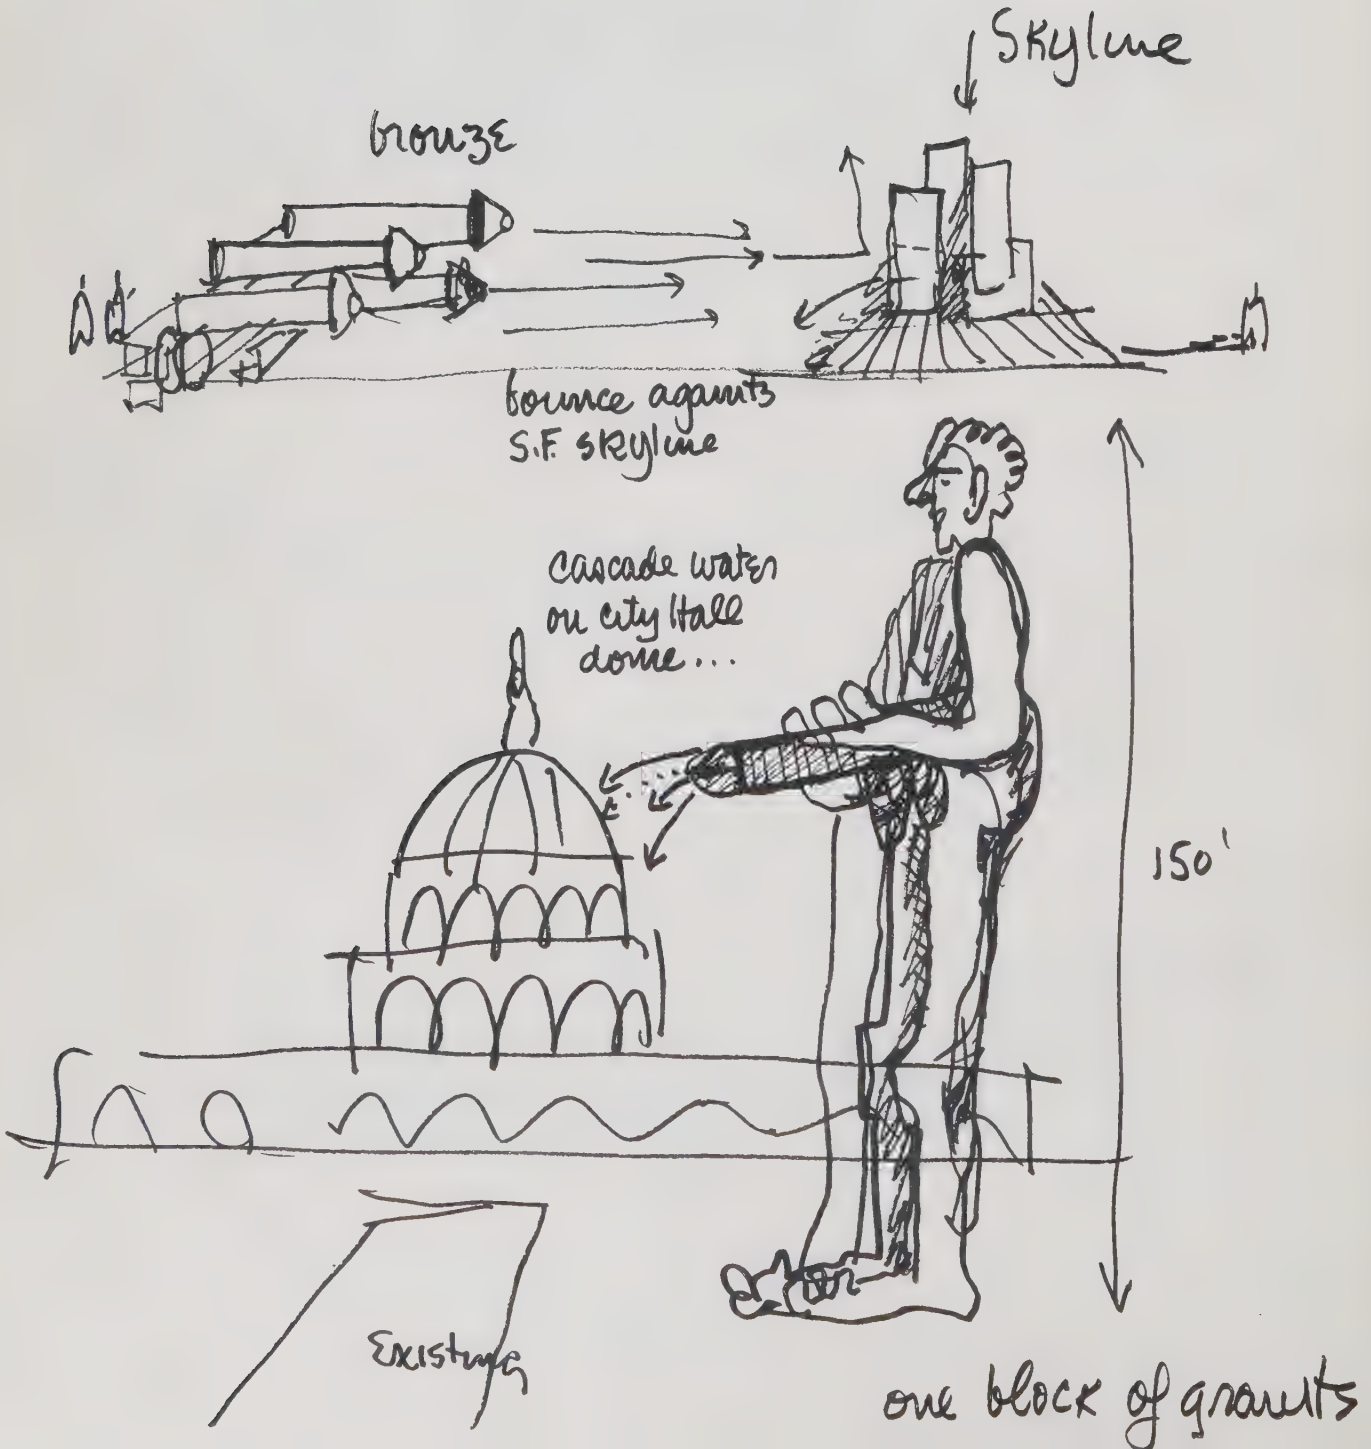 Skyline
bronze
bounce againts
S.F. skyline
cascade water
on city Hall
dome...
150'
Existing
one block of granits